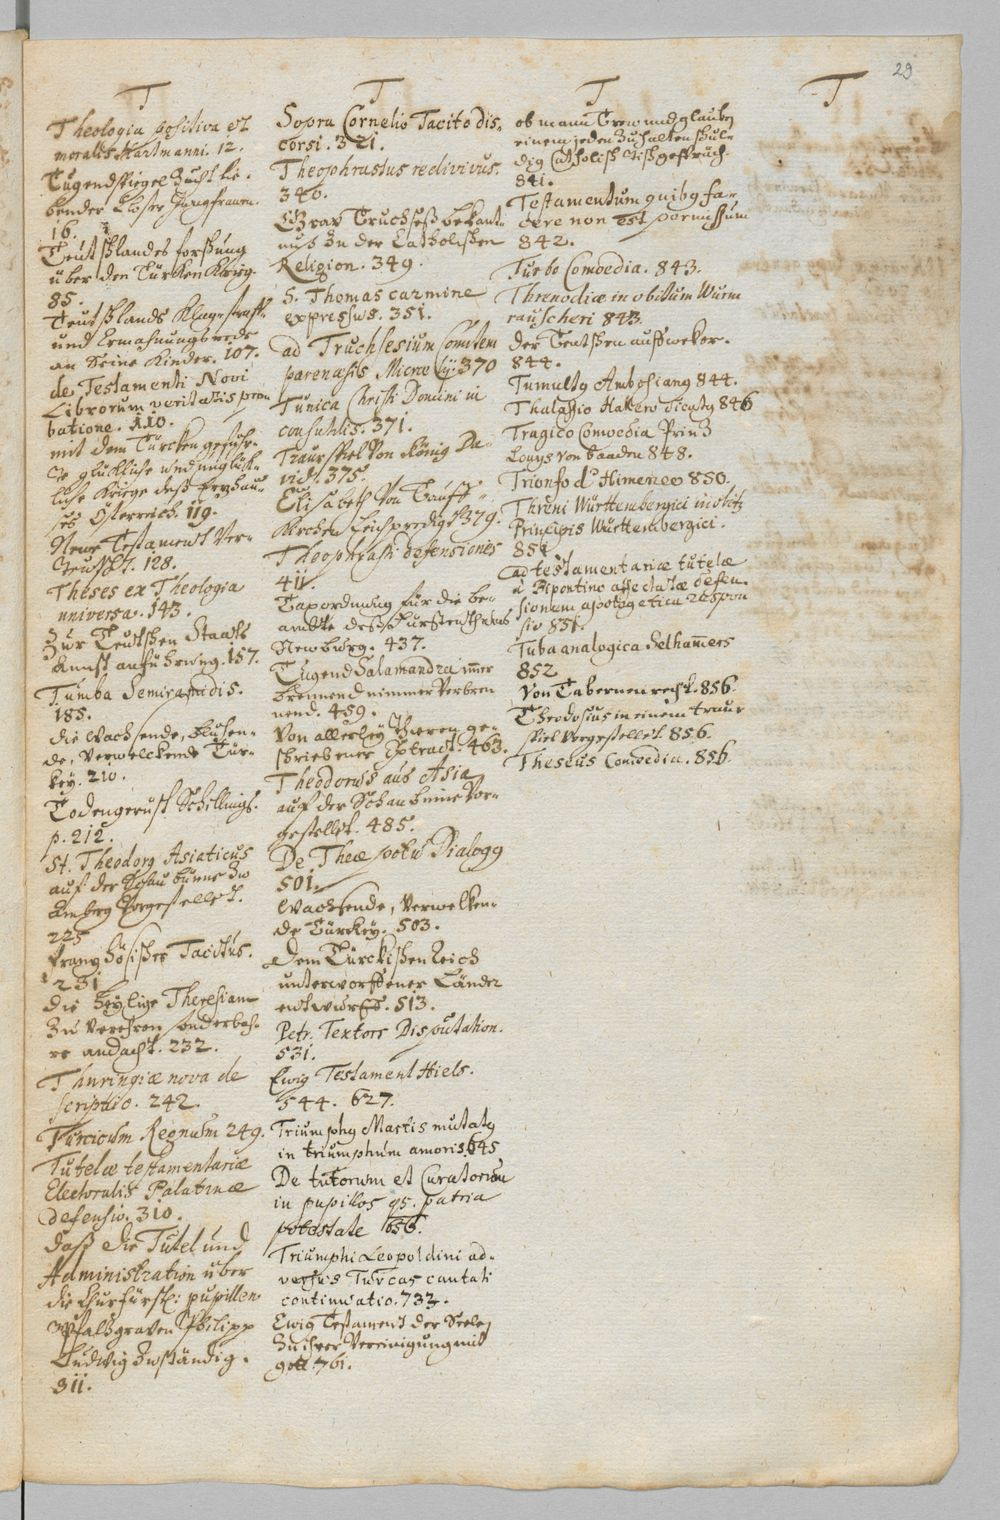 29
T
Theologia positiva et
moralis Hartmanni. 12.
Tugendspiegel Zucht lie-
bender Closter Jungfrauen.
16.
Teutschlandes forschung
über den Türcken Krieg.
85.
Teutschlands Klag-straff-
und Ermahnungsrede
an Seine Kinder. 107.
de Testamenti Novi
Librorum veritatis pro
batione. 110.
mit dem Türcken geführ-
te glückliche und unglück-
liche Kriege deß Ertzhau-
ses Österreich. 119.
Neue Testament Ver-
teutscht. 128.
Theses ex Theologia
universa. 143.
Zur Teutschen Staats
Kunst anführung. 157.
Tumba Semiramidis.
185.
die Wachsende, blühen-
de, Verwelckende Tür-
key. 210.
Todengerüst Schellings.
p. 212.
St. Theodorg Asiaticus
auf der Schau bünne zu
Amberg Vorgestellet.
225
Frantzösischer Tacitus.
231
die heylige Theresiam
zu Verehren sonderbah-
re andacht. 232.
Thuringiæ nova de
scriptio. 242.
Turcicum Regnum 249.
Tutelæ testamentariæ
Electoralis Palatinæ
defensio. 310.
daß die Tutel und
Administration über
die Churfürstl: pupillen
Pfaltzgraven Philipp
Ludwig zuständig.
311.
T
Sopra Cornelio Tacito dis-
corsi. 321.
Theophrastus redivivus.
346.
Truchseß bekant-
nuß zu der Catholischen
Religion. 349.
S. Thomas carmine
expressus. 351.
ad Truchsesium Comitem
parenæsis 370
Tunica Christi Domini in
consutilis. 371.
Traurspiel Von König Da-
vidt. 375.
Elisabeth Von Tauff-
kirchen Leichpredigt 379.
Theophrasti defensiones
411.
Taxordnung für die be-
ambte deß Fürstenthumbs
Newburg. 437.
Tugend Salamandra im̅er
brennend nimmer Verbren
nend. 459.
Von allerley Thieren ge-
schriebener Extract. 463.
Theodorus aus Asia
auf der Schaubinne Vor-
gestellet. 485.
De Theæ potu Dialogg
501.
Wachsende, Verwelken-
de Türckey. 503.
Dem Türckischen Reich
unterworffener Länder
entwurff. 513.
Petr. Textors Disputation.
531.
Ewig Testament Hiels.
544. 627.
Triumphg Martis mutatg
in triumphum amoris. 645
De tutorum et Curatorum
in pupillos qs. patria
potestate 656.
Triumphi Leopoldini ad-
versus Turcas cantati
continuatio. 732.
Ewig Testament der Seelen
zu ihrer Vereinigung mit
gott 761.
T
ob mann Trew und glauben
einem jeden zu halten schul-
dig Catholisch
841.
Testamentum quibg fa-
cere non est permissum
842.
Turbo Comoedia. 843.
Threnodiæ in obitum Wurm
rauscheri 843.
der Teutschen auffweker.
844.
Tumultg Ambosiang 844.
Thalassio Hakero dicatg 846
Tragico Comoedia Prinz
Louys Von Baaden 848.
Trionfo d'Himeneo 850.
Threni Württembergici in obitg
Principis Württembergici.
851
ad testamentariæ tutelæ
a Bipontino affectatæ defen-
sionem apologetica respon
sio 851.
Tuba analogica Selham̅ers
852
Von Tabernen recht. 856.
Theodosius in einem traur
spiel Vorgestellet 856.
Theseus Comoedia. 856.
T